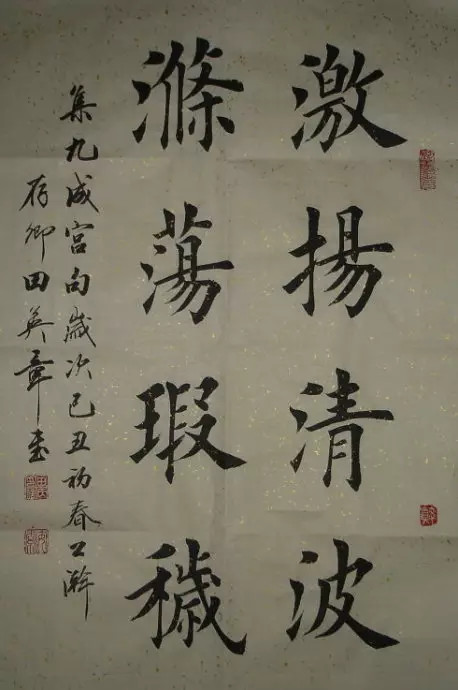 激揚清波
滌蕩瑕穢
集九成宮句歲次己丑初春以澣
存卿田英章書